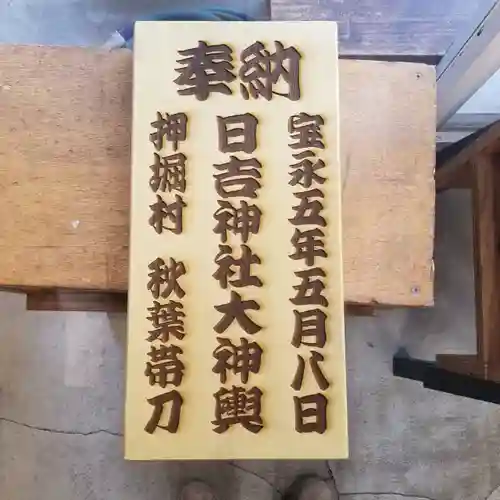 奉納
宝永五年五月八日
日吉神社大神輿
押堀村 秋葉帯刀